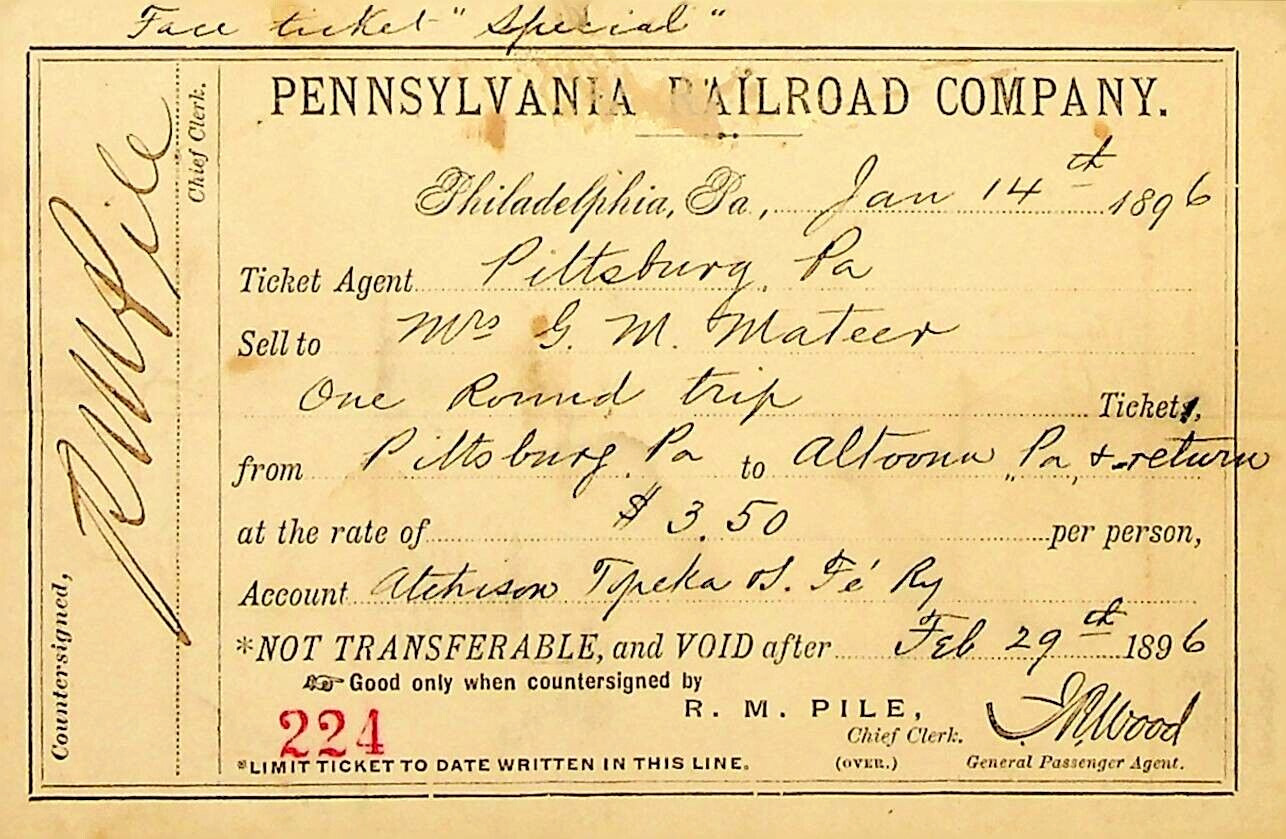 Face ticket "Special"
PENNSYLVANIA RAILROAD COMPANY.
Philadelphia, Pa., Jan 14th 1896
Ticket Agent Pittsburg, Pa
Sell to Mrs G. M. Mateer
One Round trip Ticket,
from Pittsburg, Pa to Altoona, Pa, & return
at the rate of $3.50 per person,
Account Atchison Topeka & S. Fé Ry
*NOT TRANSFERABLE, and VOID after Feb 29th 1896
Good only when countersigned by
R. M. PILE,
Chief Clerk.
224
*LIMIT TICKET TO DATE WRITTEN IN THIS LINE.
(OVER.)
J. R. Wood
General Passenger Agent.
Countersigned,
R M Pile
Chief Clerk.